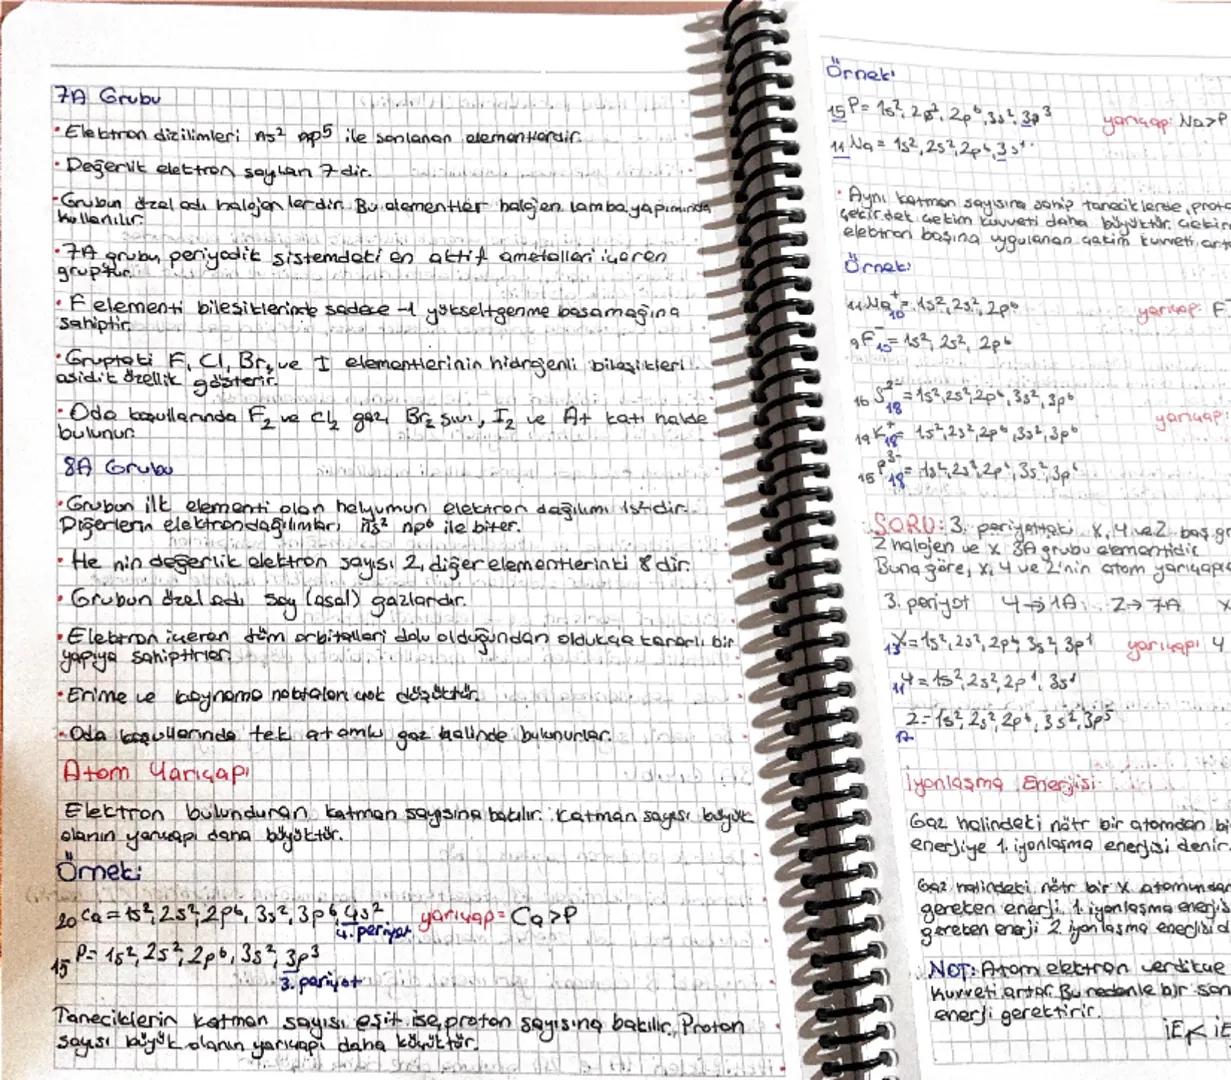 7A Grubu
• Elektron dizilimleri ns² np⁵ ile sonlanan elementlerdir.
• Değerlik elektron sayıları 7 dir.
• Grubun özel adı halojen lerdir. Bu elementler halojen lamba yapımında
kullanılır.
• 7A grubu periyodik sistemdeki en aktif ametalleri içeren
gruptur.
• F elementi bileşiklerinde sadece -1 yükseltgenme basamağına
sahiptir.
• Gruptaki F, Cl, Br, ve I elementlerinin hidrojenli bileşikleri
asidik özellik gösterir.
• Oda koşullarında F₂ ve Cl₂ gaz, Br₂ sıvı, I₂ ve At katı halde
bulunur.
8A Grubu
• Grubun ilk elementi olan helyumun elektron dağılımı 1s² dir.
Diğerlerin elektron dağılımları ns² np⁶ ile biter.
• He nin değerlik elektron sayısı 2, diğer elementlerinki 8 dir.
• Grubun özel adı soy (asal) gazlardır.
• Elektron içeren tüm orbitalleri dolu olduğundan oldukça kararlı bir
yapıya sahiptirler.
• Erime ve kaynama noktaları çok düşüktür.
• Oda koşullarında tek atomlu gaz halinde bulunurlar.
Atom Yarıçapı
Elektron bulunduran katman sayısına bakılır. Katman sayısı büyük
olanın yarıçapı daha büyüktür.
Örnek:
₂₀Ca = 1s², 2s², 2p⁶, 3s², 3p⁶, 4s² yarıçap = Ca>P
4. periyot
₁₅P = 1s², 2s², 2p⁶, 3s², 3p³
3. periyot
Taneciklerin katman sayısı eşit ise, proton sayısına bakılır. Proton
sayısı büyük olanın yarıçapı daha küçüktür.
Örnek:
₁₅P = 1s², 2s², 2p⁶, 3s², 3p³ yarıçap: Na>P
₁₁Na = 1s², 2s², 2p⁶, 3s¹
• Aynı katman sayısına sahip taneciklerde, proto
çekirdek çekim kuvveti daha büyüktür. Çekir
elektron başına uygulanan çekim kuvveti art
Örnek:
₁₁Na⁺₁₀ = 1s², 2s², 2p⁶ yarıçap: F
₉F⁻₁₀ = 1s², 2s², 2p⁶
₁₆S²⁻₁₈ = 1s², 2s², 2p⁶, 3s², 3p⁶ yarıçap:
₁₉K⁺₁₈ = 1s², 2s², 2p⁶, 3s², 3p⁶
₁₅P³⁻₁₈ = 1s², 2s², 2p⁶, 3s², 3p⁶
SORU: 3. periyottaki X, Y ve Z baş gr
Z halojen ve X 3A grubu elementidir.
Buna göre, X, Y ve Z'nin atom yarıçapı
3. periyot Y → 1A Z → 7A X
₁₃X = 1s², 2s², 2p⁶, 3s², 3p¹ yarıçapı Y
₁₁Y = 1s², 2s², 2p⁶, 3s¹
₁₇Z = 1s², 2s², 2p⁶, 3s², 3p⁵
İyonlaşma Enerjisi
Gaz halindeki nötr bir atomdan bi
enerjiye 1. iyonlaşma enerjisi denir.
Gaz halindeki nötr bir X atomundan
gereken enerji 1. iyonlaşma enerjis
gereken enerji 2. iyonlaşma enerjisid
NOT: Atom elektron verdikçe
kuvveti artar. Bu nedenle bir son
enerji gerektirir.
İE₁< İE